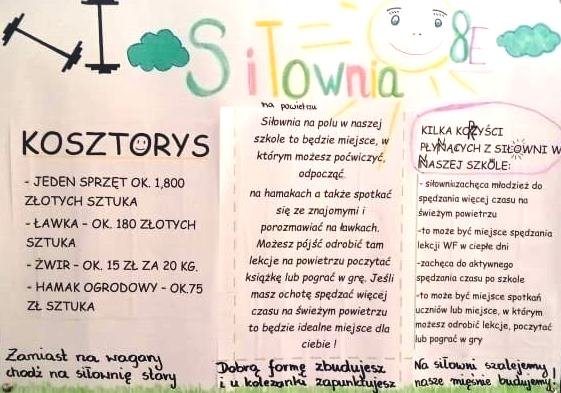 SiŁownia
8E
KOSZTORYS
- JEDEN SPRZĘT OK. 1,800
ZŁOTYCH SZTUKA
- ŁAWKA - OK. 180 ZŁOTYCH
SZTUKA
- ŻWIR - OK. 15 ZŁ ZA 20 KG.
- HAMAK OGRODOWY - OK.75
ZŁ SZTUKA
Zamiast na wagary
chodź na siłownię stary
na powietrzu
Siłownia na polu w naszej
szkole to będzie miejsce, w
którym możesz poćwiczyć,
odpocząć
na hamakach a także spotkać
się ze znajomymi i
porozmawiać na ławkach.
Możesz pójść odrobić tam
lekcje na powietrzu poczytać
książkę lub pograć w grę. Jeśli
masz ochotę spędzać więcej
czasu na świeżym powietrzu
to będzie idealne miejsce dla
ciebie !
Dobrą formę zbudujesz
i u koleżanki zapunktujesz
KILKA KORZYŚCI
PŁYNĄCYCH Z SIŁOWNI W
NASZEJ SZKOLE:
- siłowniuzachęca młodzież do
spędzania więcej czasu na
świeżym powietrzu
-to może być miejsce spędzania
lekcji WF w ciepłe dni
-zachęca do aktywnego
spędzania czasu po szkole
-to może być miejsce spotkań
uczniów lub miejsce, w którym
możesz odrobić lekcje, poczytać
lub pograć w gry
Na siłowni szalejemy
nasze mięśnie budujemy!